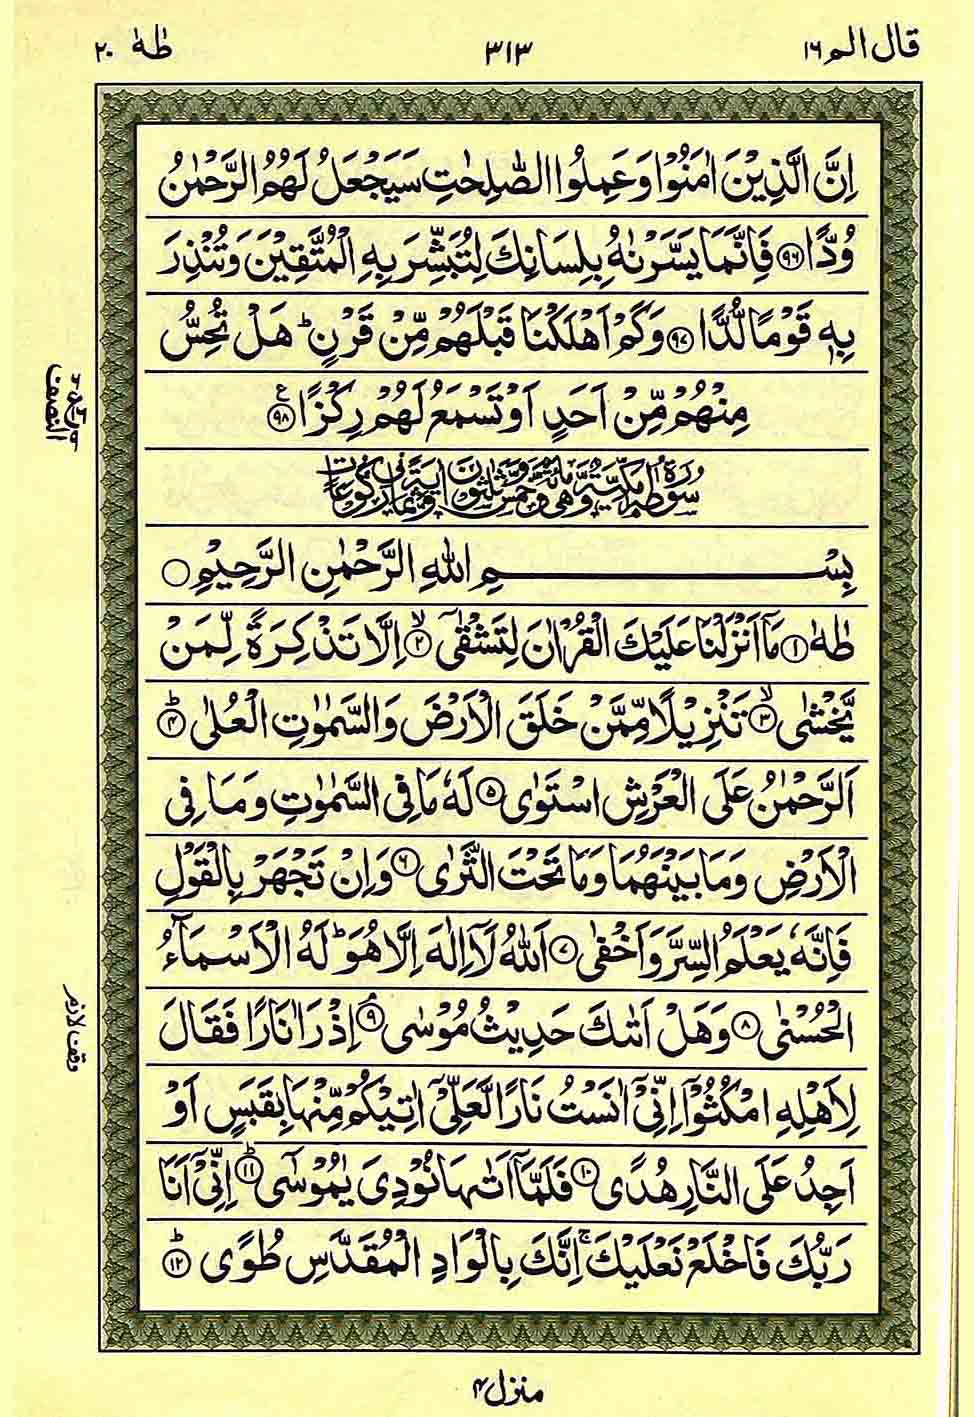 قال الم ١٦
٣١٣
طٰهٰ ٢٠
اِنَّ الَّذِيْنَ اٰمَنُوْا وَعَمِلُوا الصّٰلِحٰتِ سَيَجْعَلُ لَهُمُ الرَّحْمٰنُ
وُدًّا ﴿٩٦﴾ فَاِنَّمَا يَسَّرْنٰهُ بِلِسَانِكَ لِتُبَشِّرَ بِهِ الْمُتَّقِيْنَ وَتُنْذِرَ
بِهٖ قَوْمًا لُّدًّا ﴿٩٧﴾ وَكَمْ اَهْلَكْنَا قَبْلَهُمْ مِّنْ قَرْنٍ ؕ هَلْ تُحِسُّ
مِنْهُمْ مِّنْ اَحَدٍ اَوْ تَسْمَعُ لَهُمْ رِكْزًا ﴿٩٨﴾ ع
سُوْرَةُ طٰهٰ مَكِّيَّةٌ وَّهِيَ مِائَةٌ وَّخَمْسٌ وَّثَلٰثُوْنَ اٰيَةً وَّثَمَانِيْ رُكُوْعَاتٍ
بِسْمِ اللّٰهِ الرَّحْمٰنِ الرَّحِيْمِ
طٰهٰ ﴿١﴾ مَاۤ اَنْزَلْنَا عَلَيْكَ الْقُرْاٰنَ لِتَشْقٰۤى ﴿٢﴾ ۙ اِلَّا تَذْكِرَةً لِّمَنْ
يَّخْشٰى ﴿٣﴾ ۙ تَنْزِيْلًا مِّمَّنْ خَلَقَ الْاَرْضَ وَالسَّمٰوٰتِ الْعُلٰى ﴿٤﴾ ؕ
اَلرَّحْمٰنُ عَلَى الْعَرْشِ اسْتَوٰى ﴿٥﴾ لَهٗ مَا فِى السَّمٰوٰتِ وَمَا فِى
الْاَرْضِ وَمَا بَيْنَهُمَا وَمَا تَحْتَ الثَّرٰى ﴿٦﴾ وَاِنْ تَجْهَرْ بِالْقَوْلِ
فَاِنَّهٗ يَعْلَمُ السِّرَّ وَاَخْفٰى ﴿٧﴾ اَللّٰهُ لَاۤ اِلٰهَ اِلَّا هُوَ ؕ لَهُ الْاَسْمَآءُ
الْحُسْنٰى ﴿٨﴾ وَهَلْ اَتٰىكَ حَدِيْثُ مُوْسٰى ﴿٩﴾ ۘ اِذْ رَاٰ نَارًا فَقَالَ
لِاَهْلِهِ امْكُثُوْۤا اِنِّىْۤ اٰنَسْتُ نَارًا لَّعَلِّىْۤ اٰتِيْكُمْ مِّنْهَا بِقَبَسٍ اَوْ
اَجِدُ عَلَى النَّارِ هُدًى ﴿١٠﴾ فَلَمَّاۤ اَتٰىهَا نُوْدِىَ يٰمُوْسٰى ﴿١١﴾ ؕ اِنِّىْۤ اَنَا
رَبُّكَ فَاخْلَعْ نَعْلَيْكَ ۚ اِنَّكَ بِالْوَادِ الْمُقَدَّسِ طُوًى ﴿١٢﴾ ؕ
النصف
وقف لازم
منزل ٤